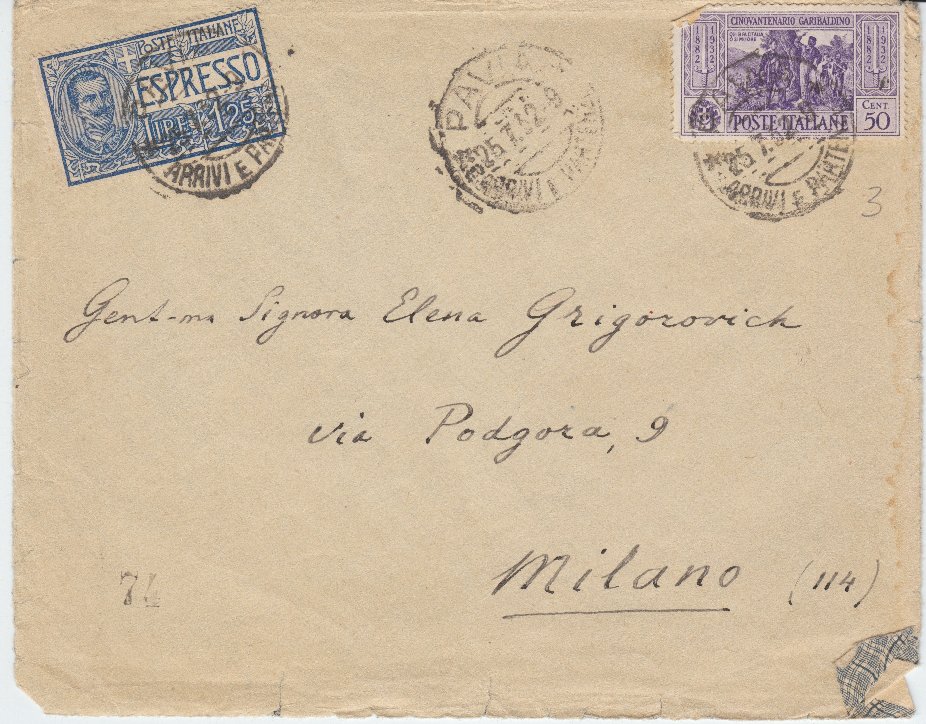 POSTE ITALIANE
ESPRESSO
LIRE 1,25
ARRIVI E
PAVIA
25.7.32
ARRIVI E
CINQVANTENARIO GARIBALDINO
1882 1932
1882 1932
QUI SI FA L'ITALIA
O SI MUORE
POSTE ITALIANE
CENT. 50
25.7.32
ARRIVI E PARTEN
3
Gent-ma Signora Elena Grigorovich
via Podgora, 9
Milano (114)
74